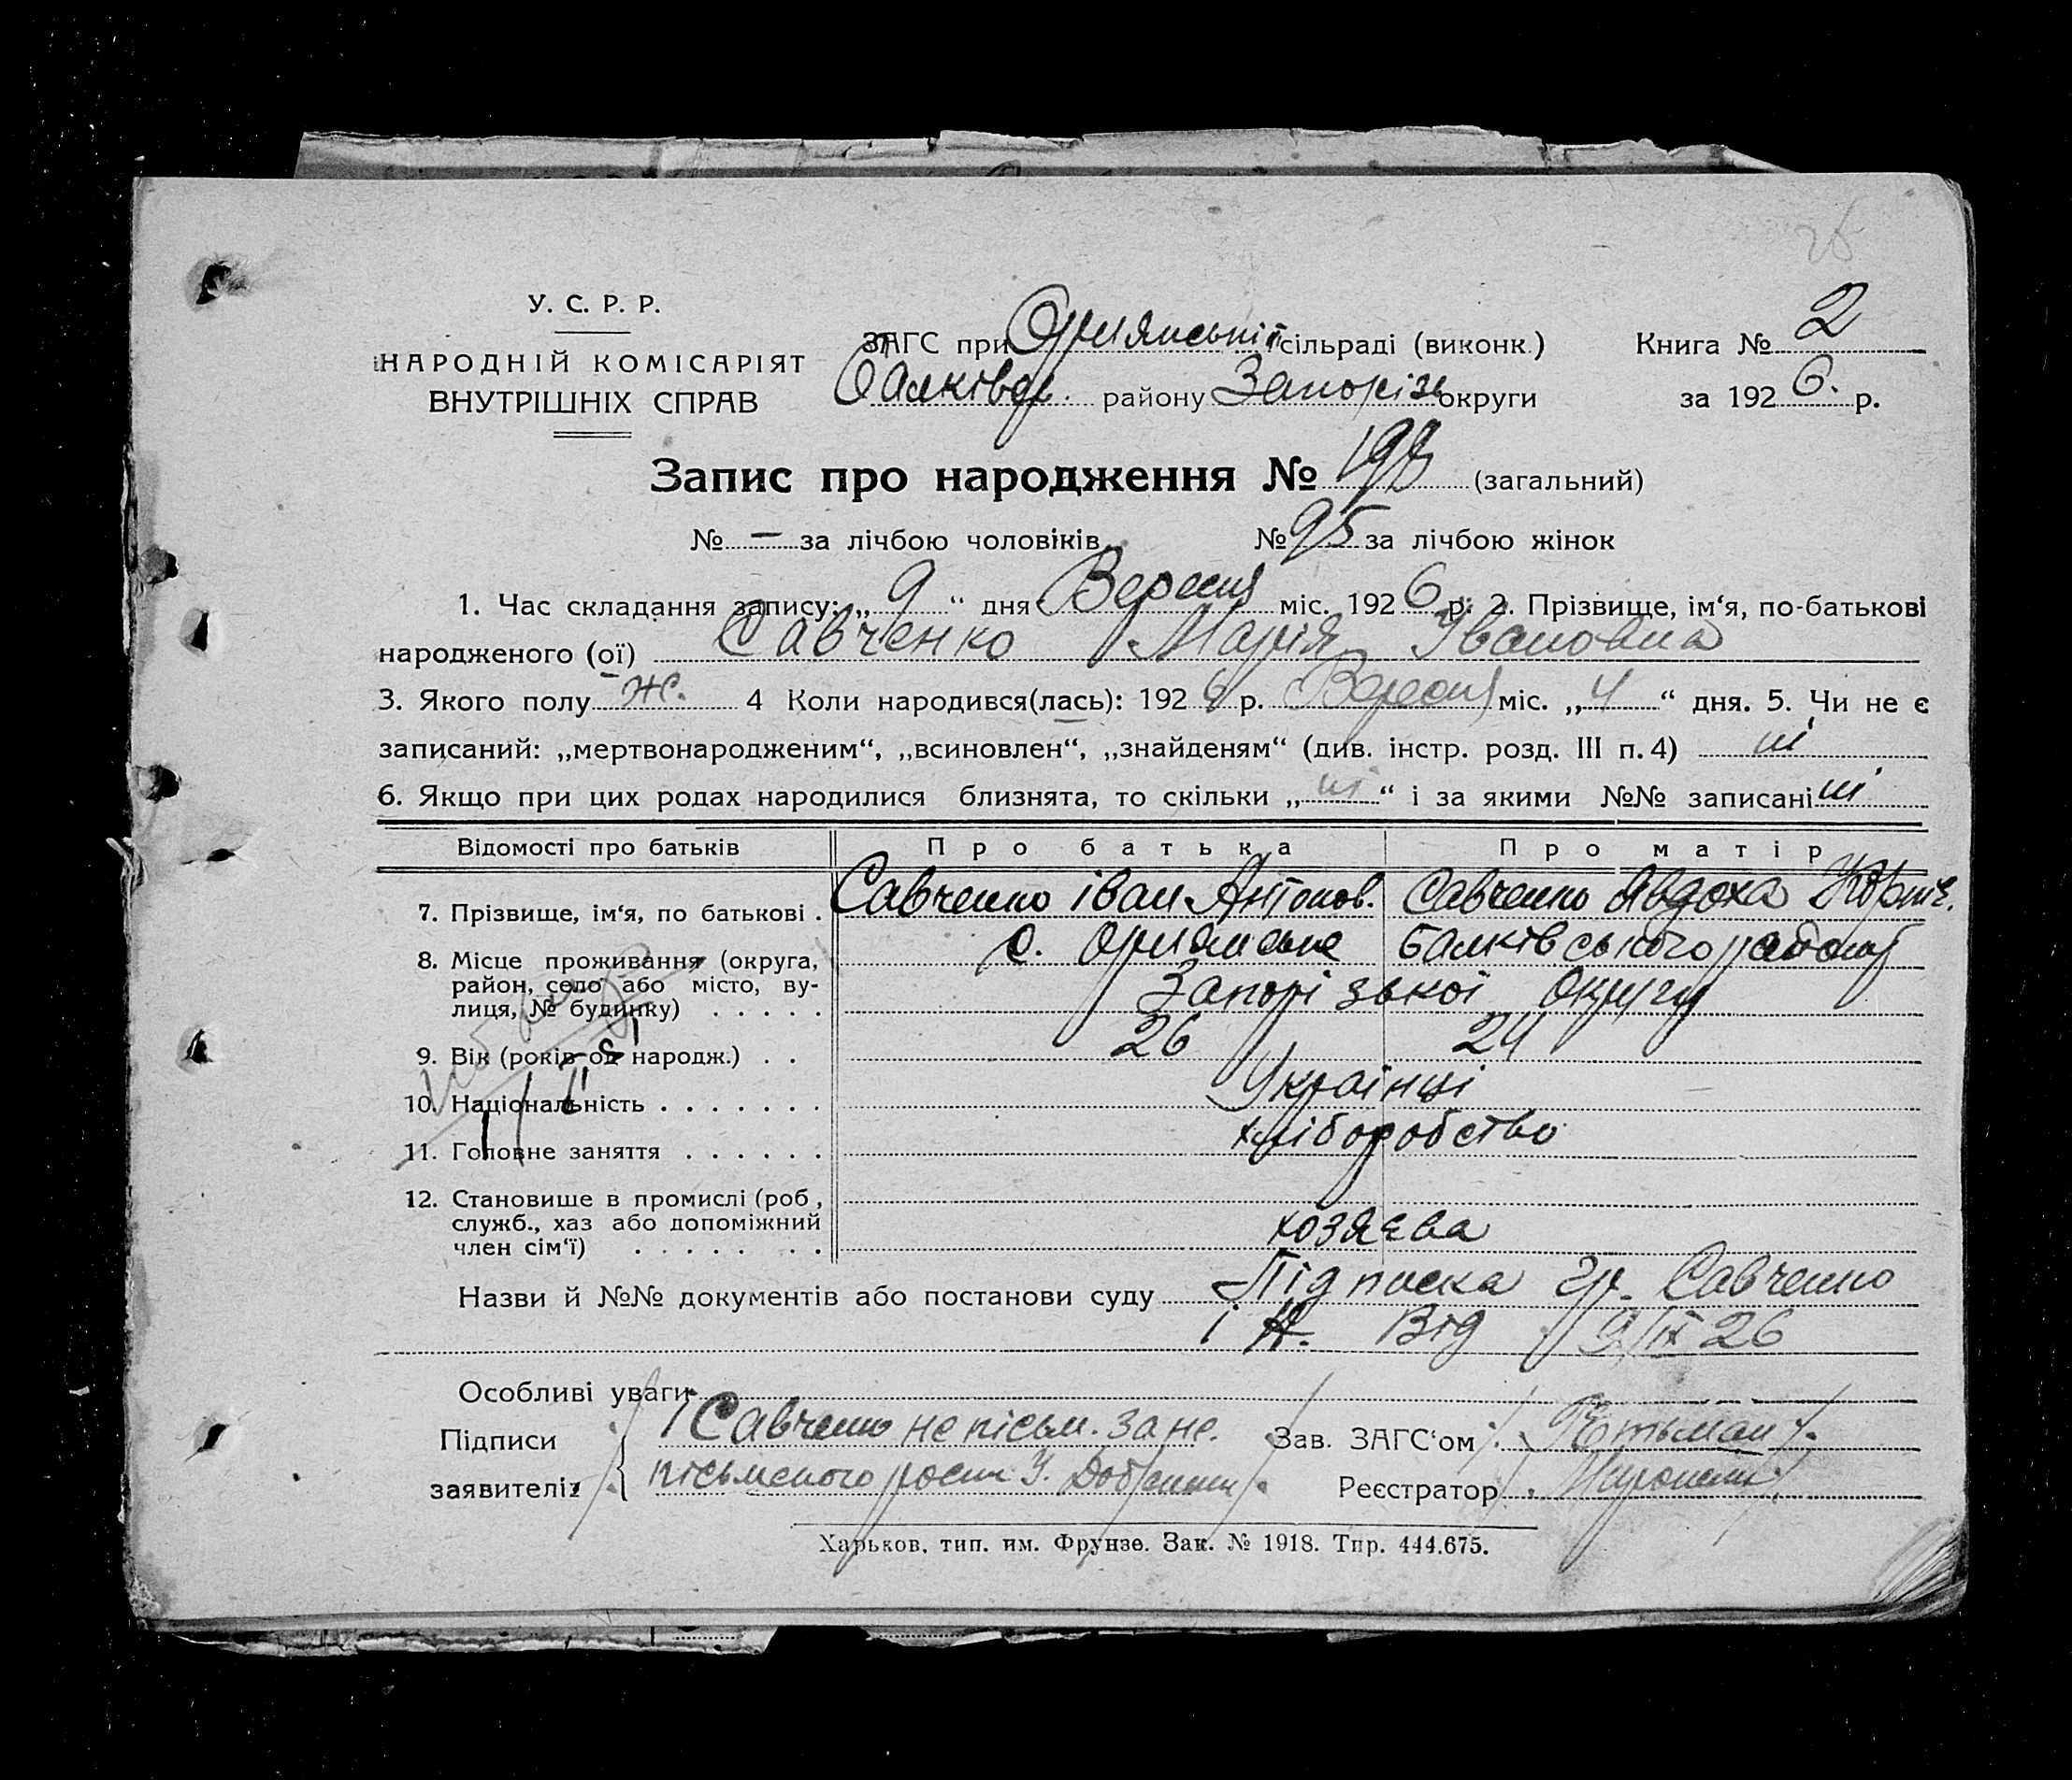 У. С. Р. Р.
НАРОДНІЙ КОМІСАРІЯТ
ВНУТРІШНІХ СПРАВ
ЗАГС при сільраді (виконк.)
району Запорізь округи
Книга № 2
за 1926. р.
Запис про народження № 198 (загальний)
№ — за лічбою чоловіків. № 95 за лічбою жінок
1. Час складання запису: „ 9 “ дня Вересня міс. 1926 р. 2. Прізвище, ім‘я, по-батькові
народженого (ої) Савченко Марія Івановна
3. Якого полу ж. 4 Коли народився(лась): 1926 р. Вересня міс. „ 4 “ дня. 5. Чи не є
записаний: „мертвонародженим“, „всиновлен“, „знайденям“ (див. інстр. розд. III п. 4) ні
6. Якщо при цих родах народилися близнята, то скільки „ ні “ і за якими №№ записані ні
Відомості про батьків Про батька Про матір
7. Прізвище, ім‘я, по батькові . Савченко іван Антонов. Савченко Явдоха
8. Місце проживання (округа, с. Балківського району
район, село або місто, ву- Запорізької округи
лиця, № будинку) . . . . .
9. Вік (років од народж.) . . 26 24
10. Національність . . . . . . . Українці
11. Головне заняття . . . . . . хліборобство
12. Становище в промислі (роб ,
служб., хаз або допоміжний
член сім‘ї) . . . . . . . . хозяєва
Назви й №№ документів або постанови суду Підписка гр. Савченко
і А. від 9/IX 26
Особливі уваги
Підписи Савченко не пісьм. за не. Зав. ЗАГС‘ом Гетьман
заявителів пісьменого росп. Реєстратор
Харьков, тип. им. Фрунзе. Зак. № 1918. Тир. 444.675.